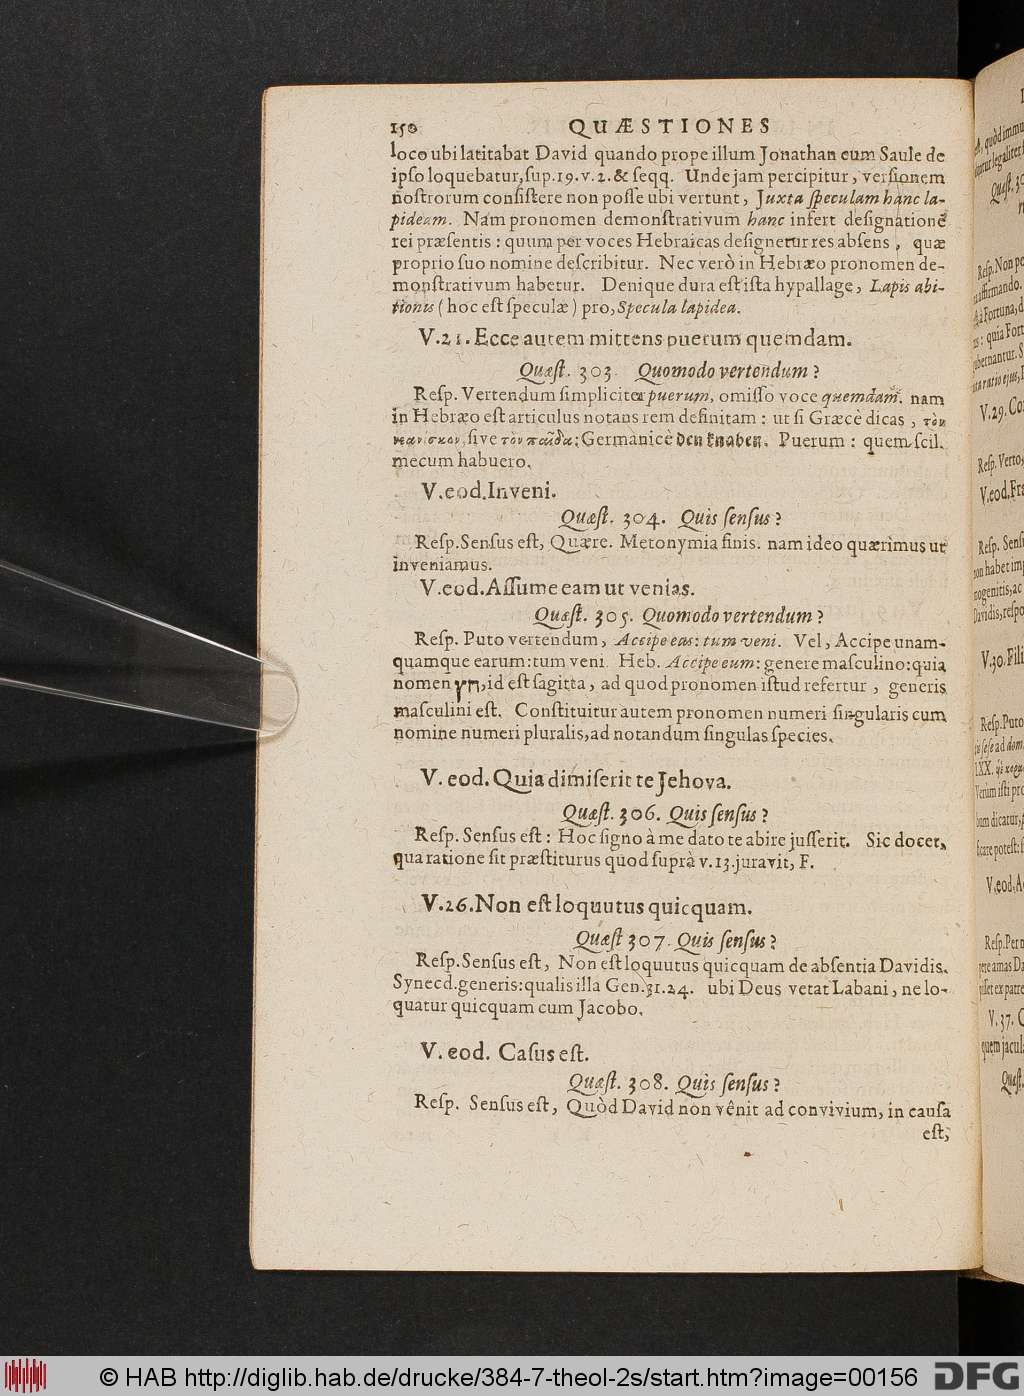 150 QUÆSTIONES
loco ubi latitabat David quando prope illum Jonathan cum Saule de
ipso loquebatur, sup. 19. v. 2. & seqq. Unde jam percipitur, versionem
nostrorum consistere non posse ubi vertunt, Juxta speculam hanc la-
pideam. Nam pronomen demonstrativum hanc infert designationẽ
rei præsentis: quum per voces Hebraicas designetur res absens, quæ
proprio suo nomine describitur. Nec verò in Hebræo pronomen de-
monstrativum habetur. Denique dura est ista hypallage, Lapis abi-
tionis (hoc est speculæ) pro, Specula lapidea.
V. 21. Ecce autem mittens puerum quemdam.
Quæst. 303. Quomodo vertendum?
Resp. Vertendum simpliciter puerum, omisso voce quemdam. nam
in Hebræo est articulus notans rem definitam: ut si Græcè dicas, τὸν
νεανίσκον, sive τὸν παῖδα: Germanicè den knaben. Puerum: quem scil.
mecum habuero.
V. eod. Inveni.
Quæst. 304. Quis sensus?
Resp. Sensus est, Quære. Metonymia finis. nam ideo quærimus ut
inveniamus.
V. eod. Assume eam ut venias.
Quæst. 305. Quomodo vertendum?
Resp. Puto vertendum, Accipe eas: tum veni. Vel, Accipe unam-
quamque earum: tum veni. Heb. Accipe eum: genere masculino: quia
nomen חץ, id est sagitta, ad quod pronomen istud refertur, generis
masculini est. Constituitur autem pronomen numeri singularis cum
nomine numeri pluralis, ad notandum singulas species.
V. eod. Quia dimiserit te Jehova.
Quæst. 306. Quis sensus?
Resp. Sensus est: Hoc signo à me dato te abire jusserit. Sic docet,
qua ratione sit præstiturus quod suprà v. 13. juravit, F.
V. 26. Non est loquutus quicquam.
Quæst 307. Quis sensus?
Resp. Sensus est, Non est loquutus quicquam de absentia Davidis.
Synecd. generis: qualis illa Gen. 31. 24. ubi Deus vetat Labani, ne lo-
quatur quicquam cum Jacobo.
V. eod. Casus est.
Quæst. 308. Quis sensus?
Resp. Sensus est, Quòd David non vênit ad convivium, in causa
est,
© HAB http://diglib.hab.de/drucke/384-7-theol-2s/start.htm?image=00156
DFG